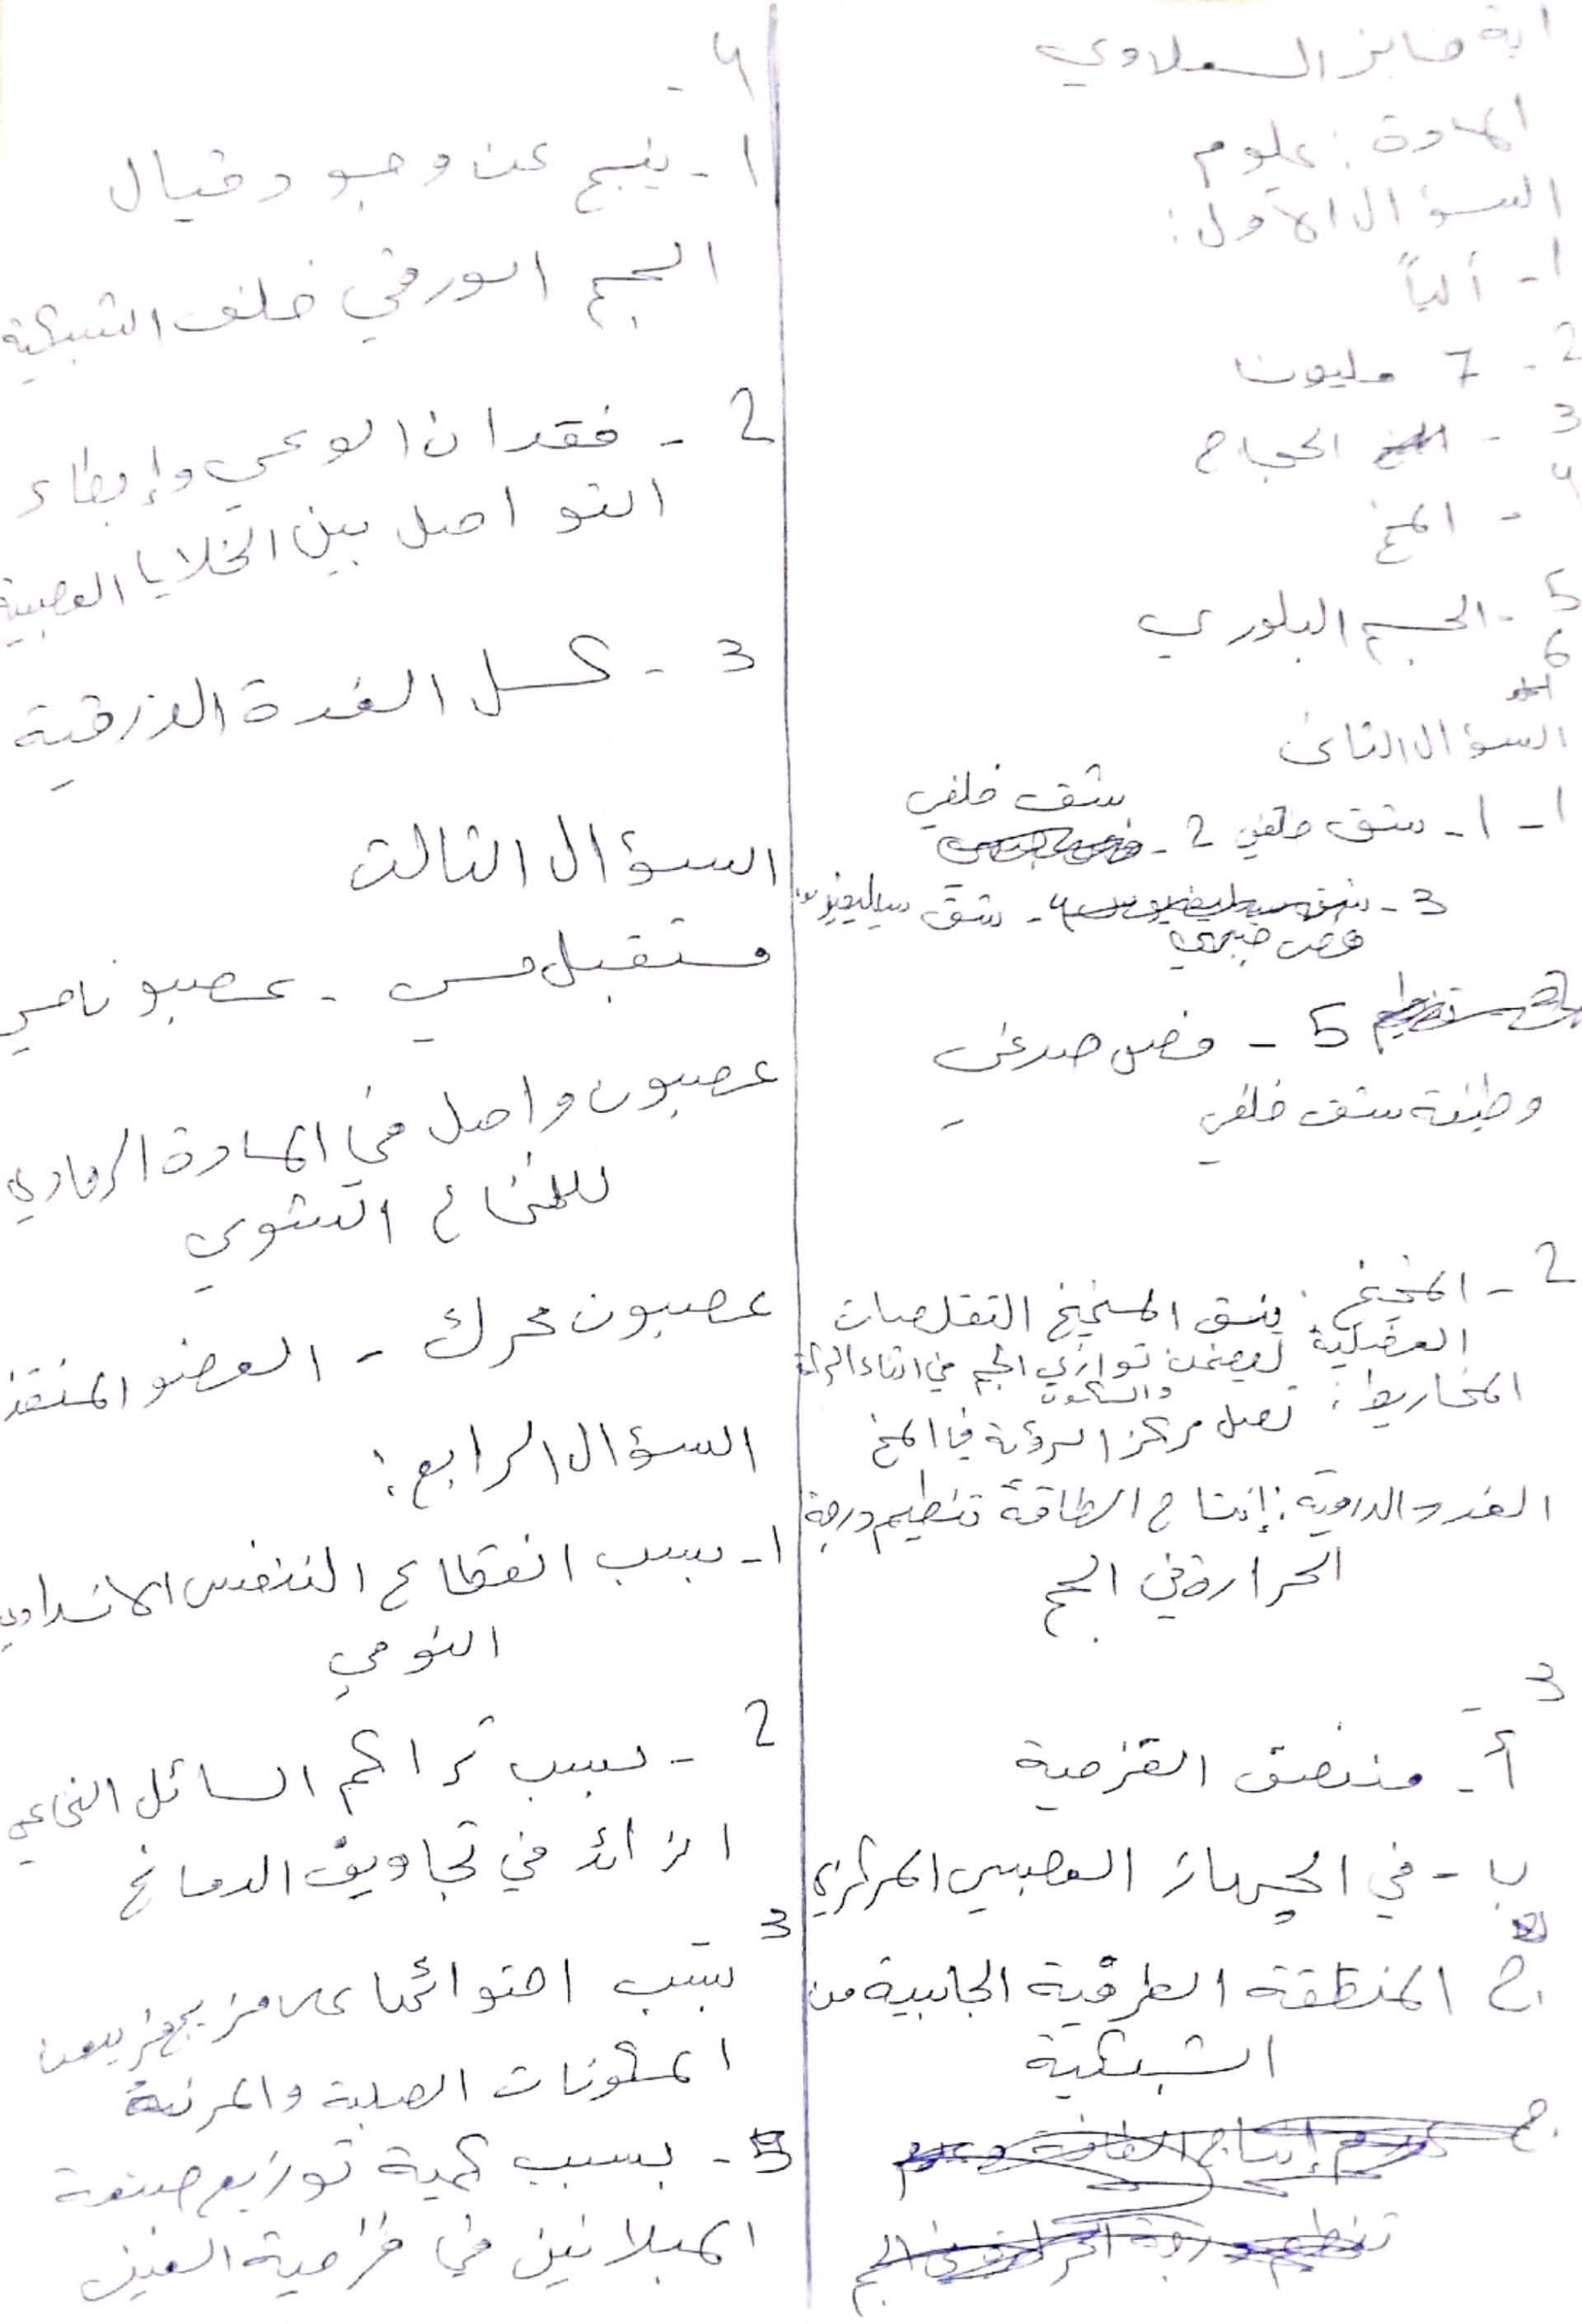 اية فايز السعلاوي
المادة: علوم
السؤال الأول:
1- ألياً
2- 7 مليون
3- الحجاج
4- المخ
5- الجسم البلوري
6
السؤال الثاني
1- 1- شق خلفي 2- شق خلفي
3- فص جبهي 4- شق سيلفيوس
5- فص صدغي
وظيفة شق خلفي
2- المخيخ: ينسق المخيخ التقلصات
العضلية ليضمن توازي الجسم في اثناء الحركة
والسكون
المخاريط: تصل مركز الرؤية في المخ
الغدد الدرقية: إنتاج الطاقة تنظيم درجة
الحرارة في الجسم
3-
أ- منتصف القزحية
ب- في الجهاز العصبي المركزي
ج. المنطقة الطرفية الجانبية من
الشبكية
4-
1- ينتج عن وجود خيال
الجسم الورقي خلف الشبكية
2- فقدان الوعي وإبطاء
التواصل بين الخلايا العصبية
3- كسل الغدة الدرقية
السؤال الثالث
مستقبل حسي - عصبون حسي
عصبون واصل في المادة الرمادي
للنخاع الشوي
عصبون محرك - العضو المنفذ
السؤال الرابع:
1- بسبب انقطاع التنفس الانسدادي
النومي
2- بسبب تراكم السائل النخاعي
الزائد في تجاويف الدماغ
3- بسبب احتوائها على مزيج فريد من
المكونات الصلبة والمرنة
5- بسبب كمية توزيع صبغة
الميلانين في قزحية العين